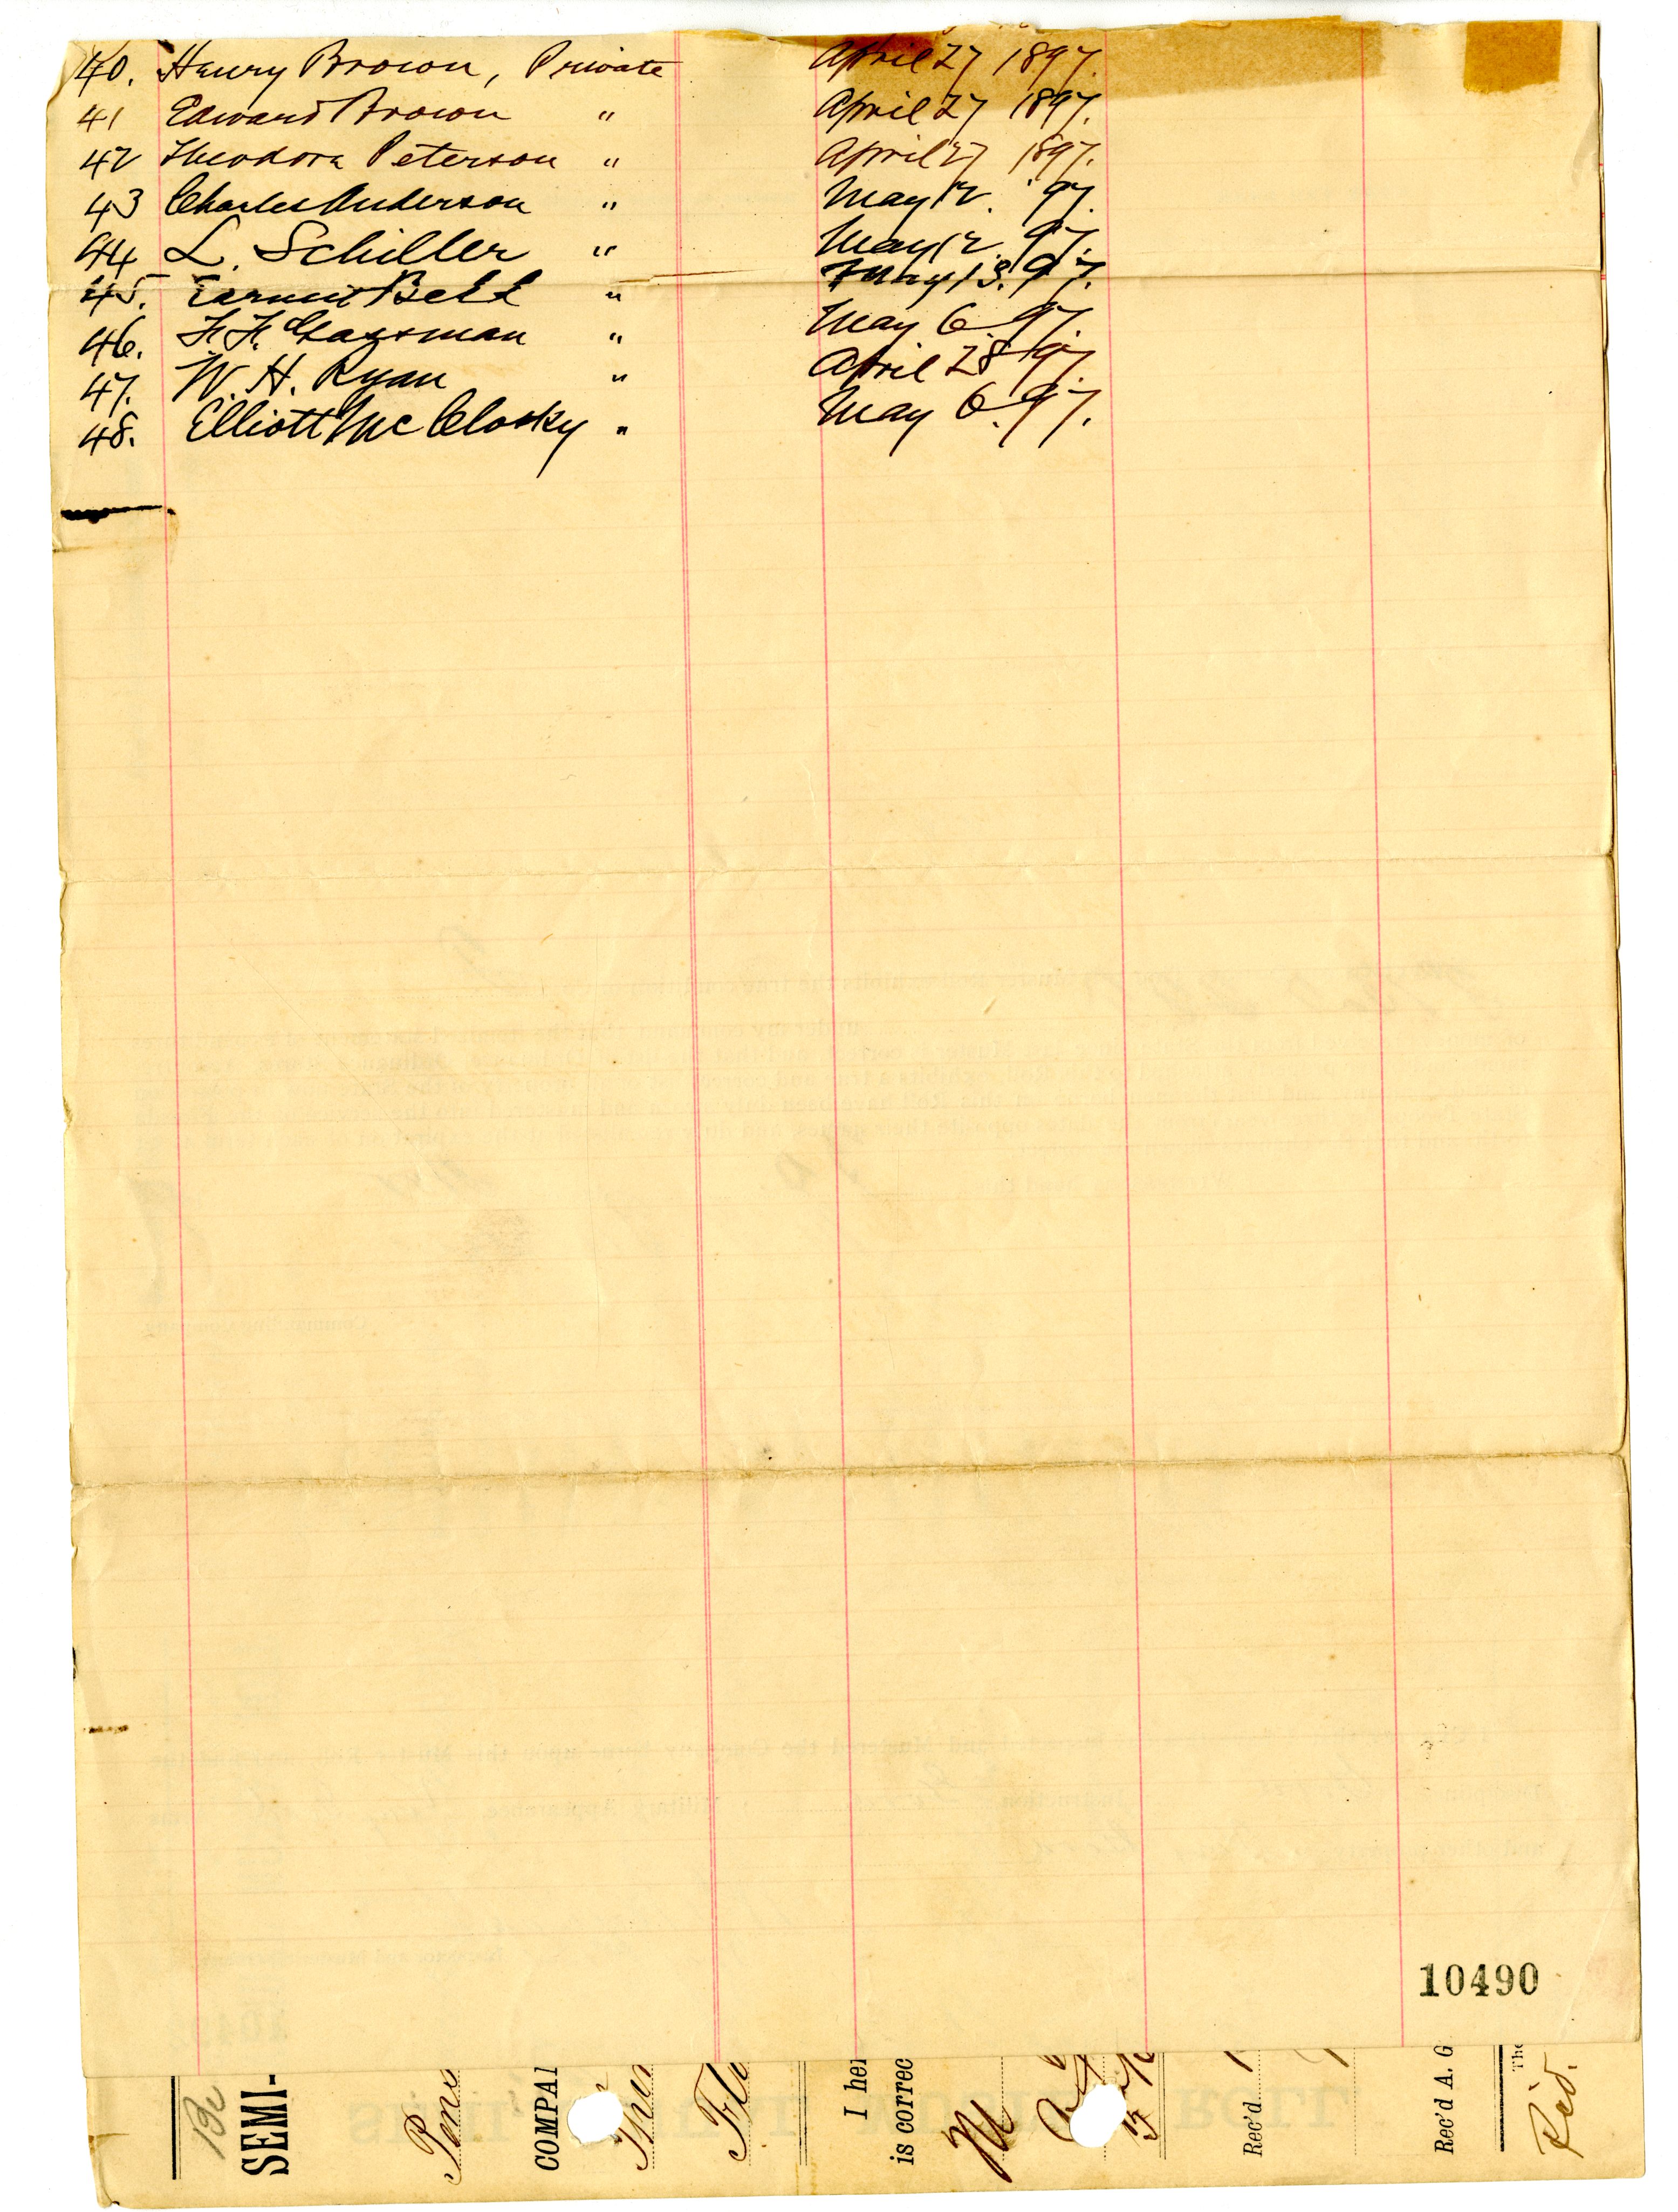 40. Henry Brown, Private April 27 1897.
41 Edward Brown " April 27 1897.
42 Theodore Peterson " April 27 1897.
43 Charles Anderson " May 12. 97.
44 L. Schiller " May 12. 97.
45. Bell " May 13. 97.
46. F. F. " May 6 97.
47. W. H. Ryan " April 28 97.
48. Elliott McClosky " May 6. 97.
10490
SEMI-
Pens
COMPAI
Flo
I her
is correc
Rec'd
Rec'd A. G
The